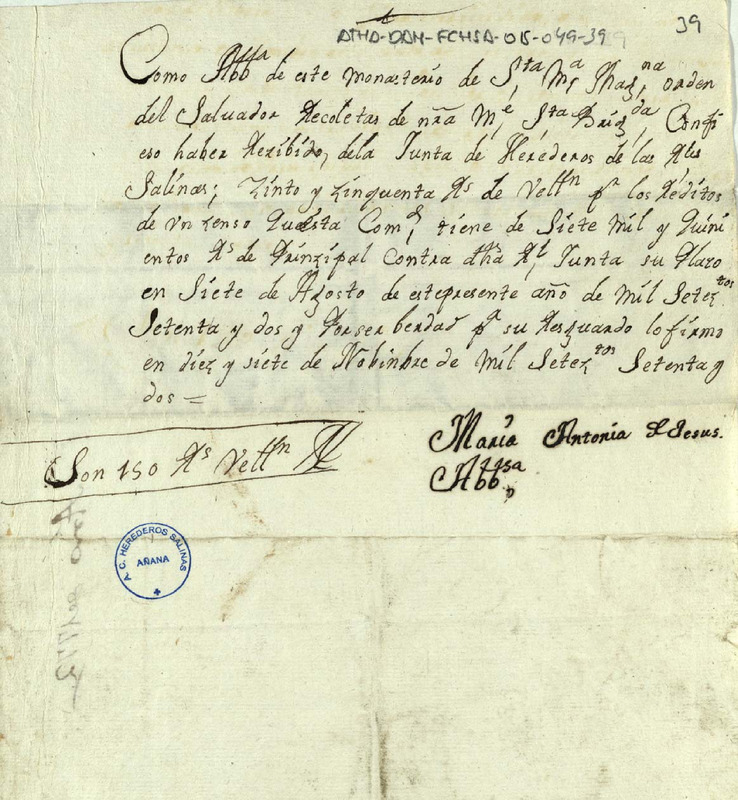 39
ATHA-DAH-FCHSA-015-049-39
Como Abb.ª de este monasterio de S.ta M.ª Mag.na orden
del Salvador Recoletas de nrã M.e S.ta Brig.da Confi
eso haber Rezibido, dela Junta de Herederos de las Rles
Salinas; Zinto y Zinquenta Rs de Vell.n p.r los Réditos
de vn zenso questa Com.d tiene de Siete mil y Quini
entos Rs de Prinzipal Contra dha Rl Junta su Plazo
en Siete de Agosto de estepresente año de mil Setez.tos
Setenta y dos y Porser berdad p.r su Resguardo lo firmo
en diez y siete de Nobinbre de mil Setez.tos Setenta y
dos =
María Antonia de Jesus.
Abb.sa
Son 150 Rs Vell.n
A. C. HEREDEROS SALINAS
AÑANA